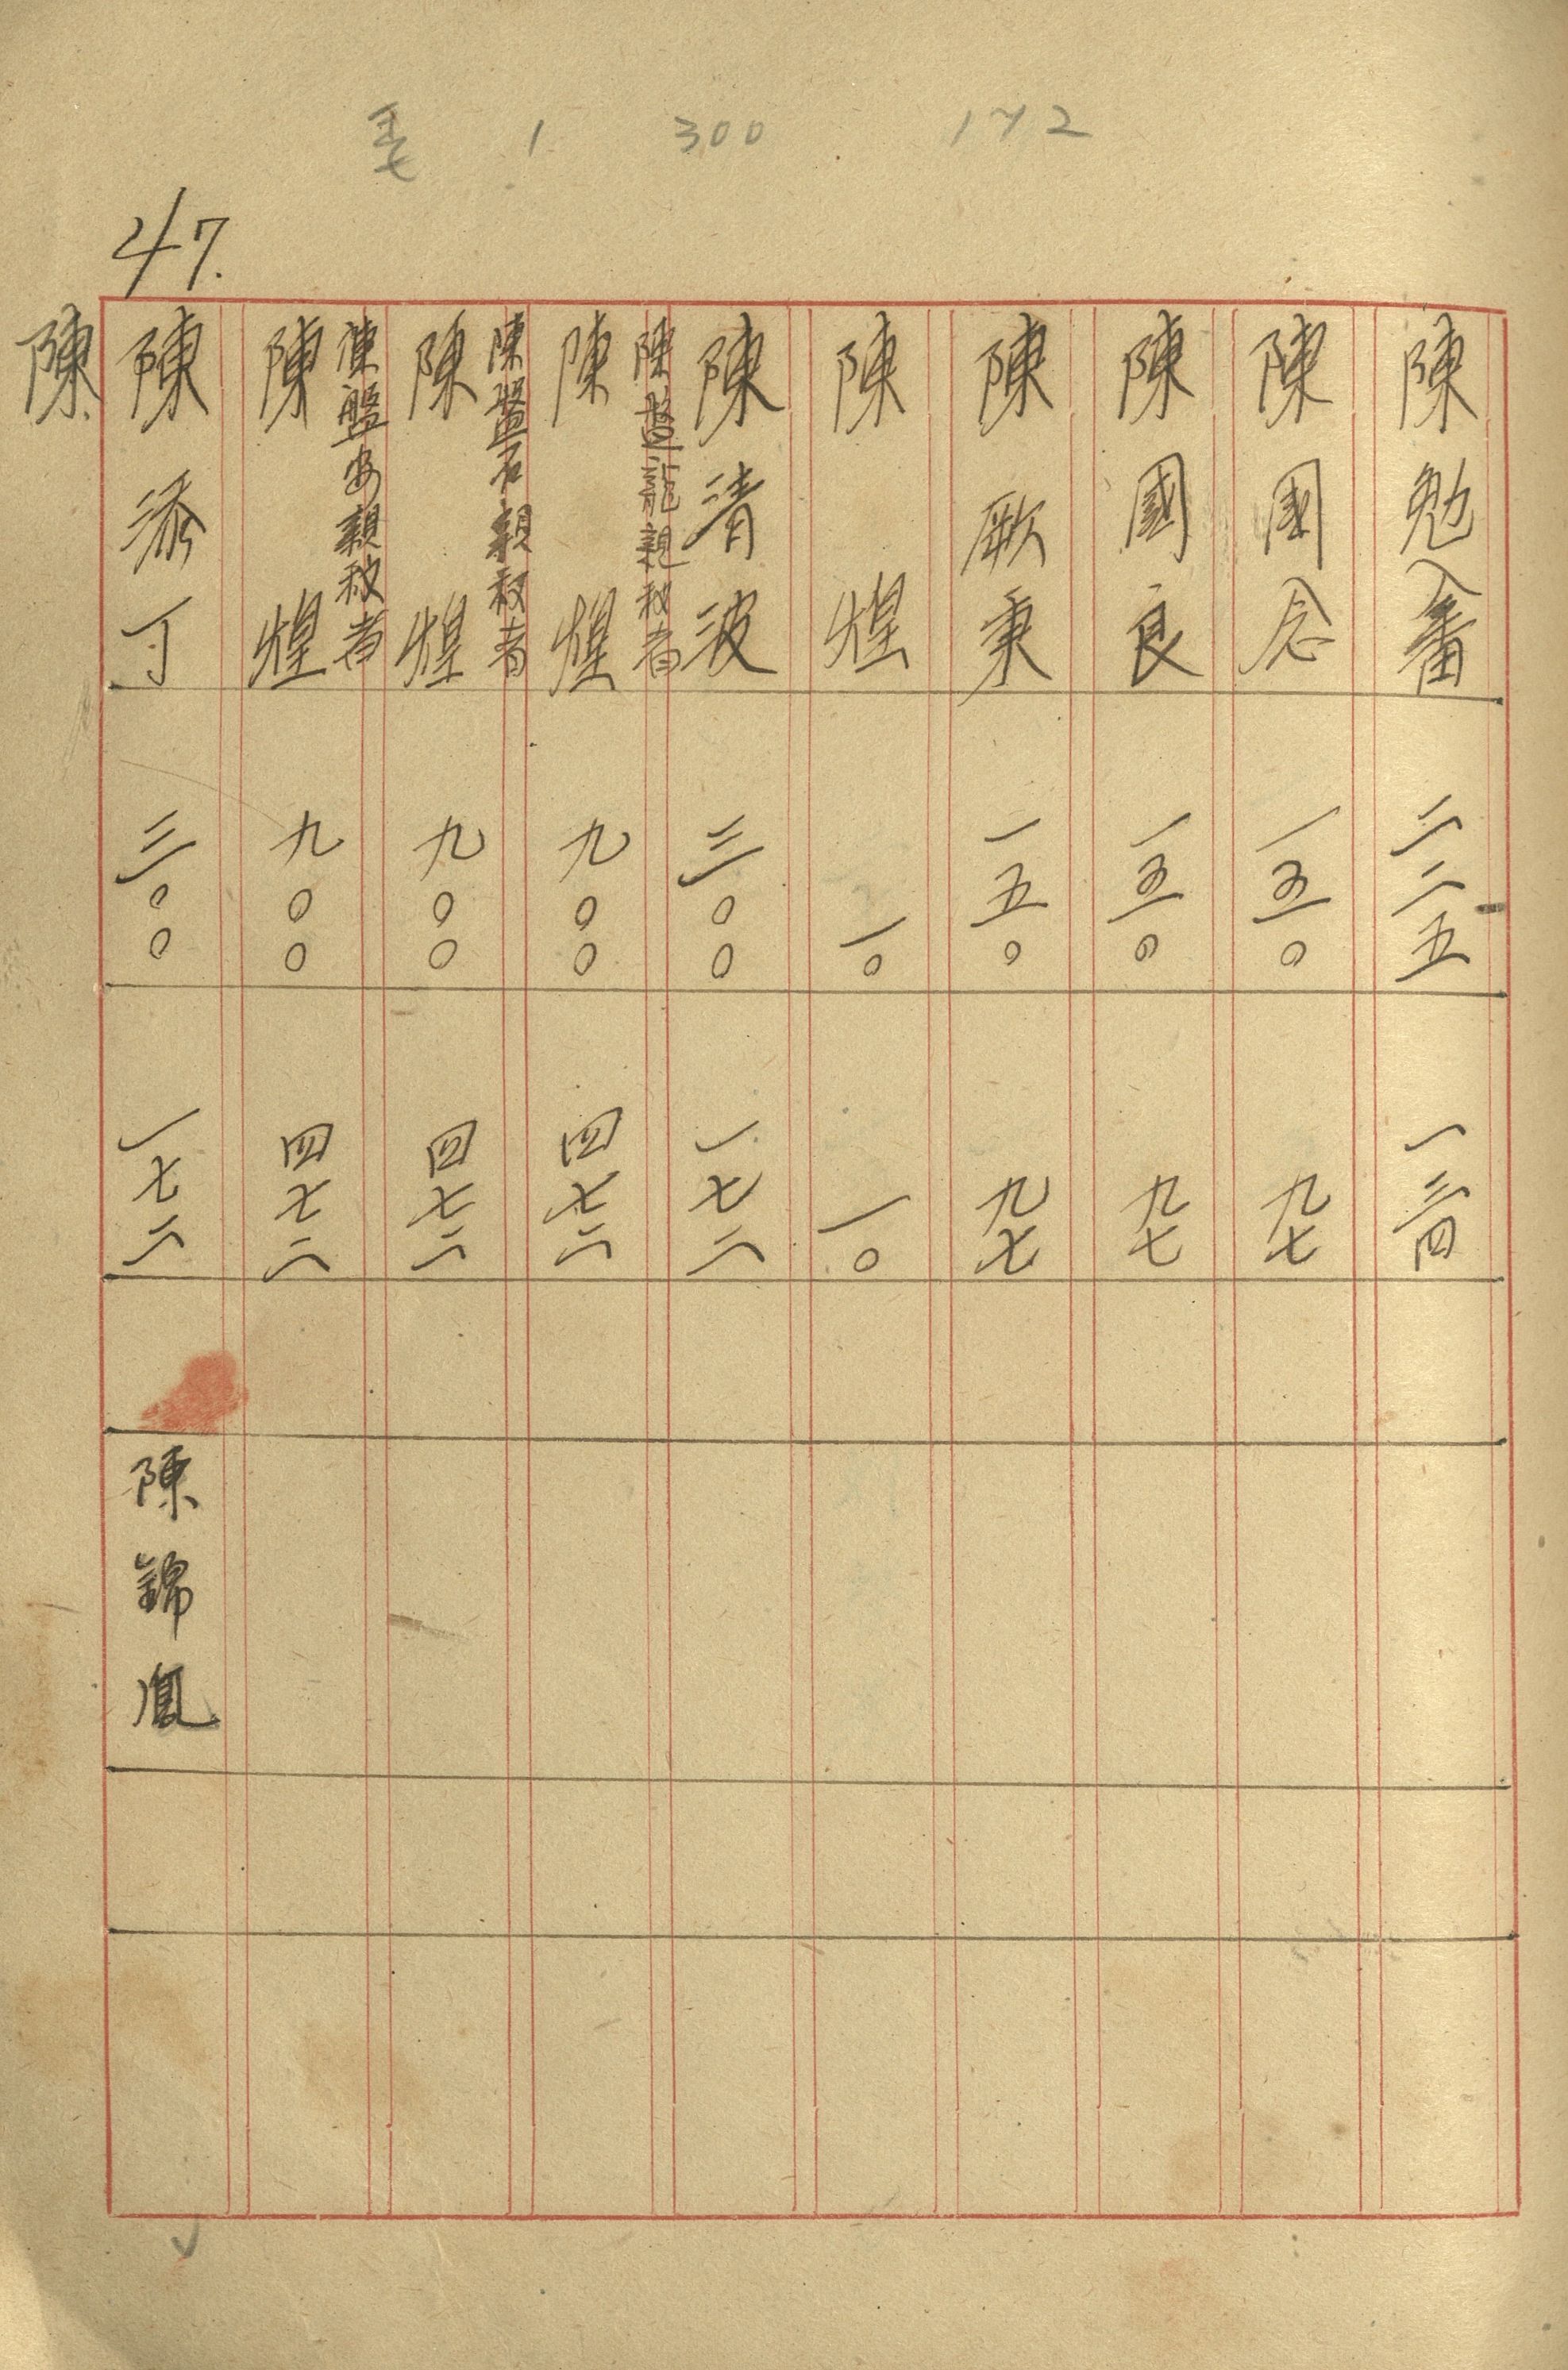 1 300 172
47.
陳勉番 二二五 一三四
陳國念 一五〇 九七
陳國良 一五〇 九七
陳歌秉 一五〇 九七
陳煌 一〇 一〇
陳清波 三〇〇 一七二
陳盤龍親权者
陳煌 九〇〇 四七二
陳盤石親权者
陳煌 九〇〇 四七二
陳盤安親权者
陳煌 九〇〇 四七二
陳添丁 三〇〇 一七二 陳錦鳳
陳